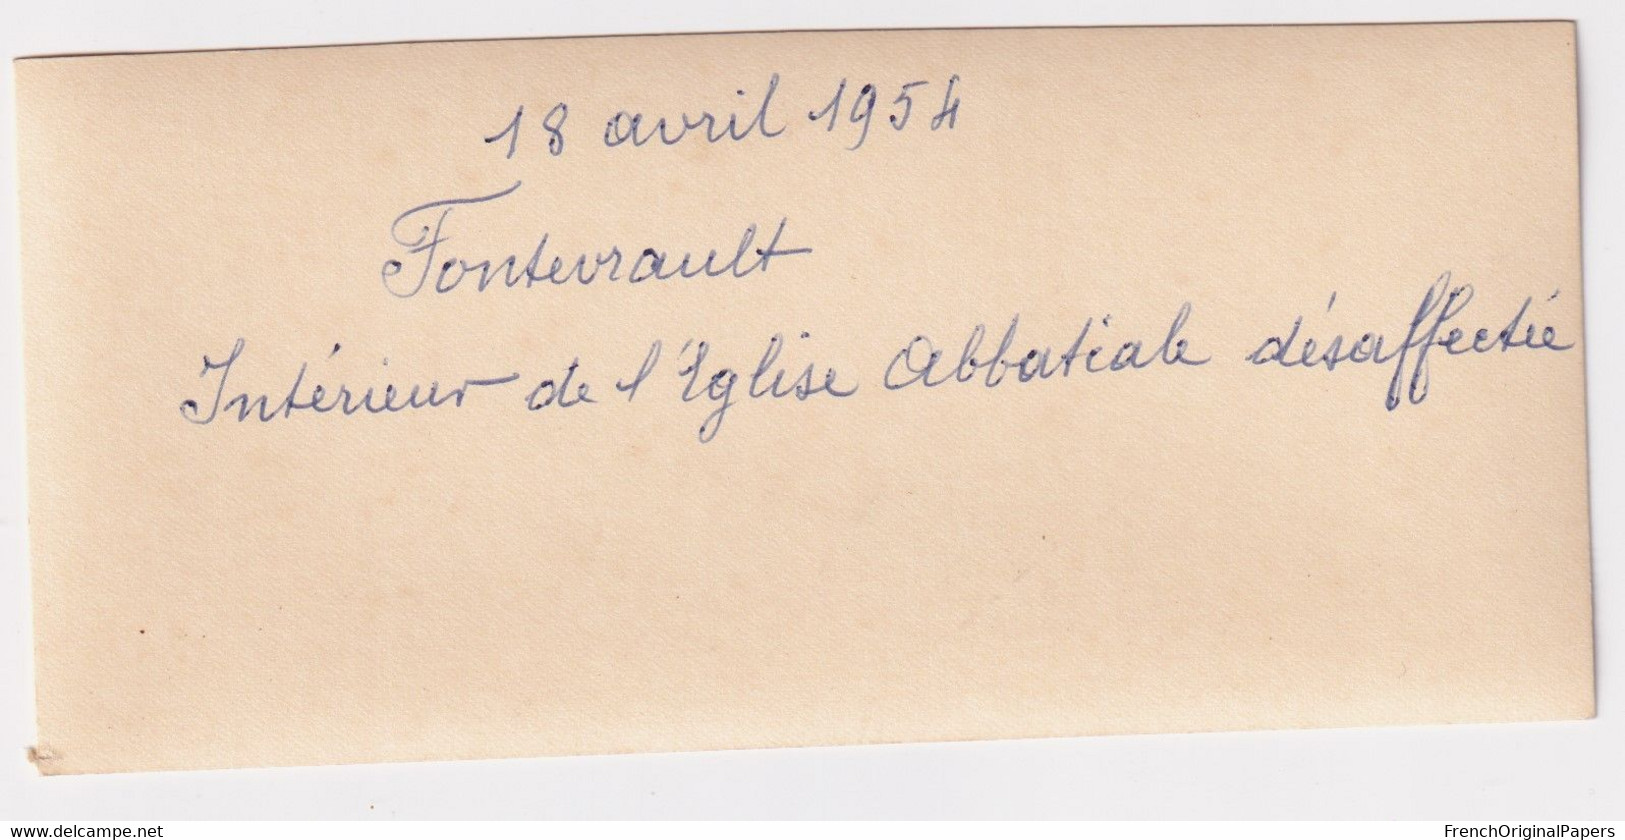 18 avril 1954
Fontevrault
Intérieur de l'Eglise Abbatiale désaffectée
www.delcampe.net
FrenchOriginalPapers